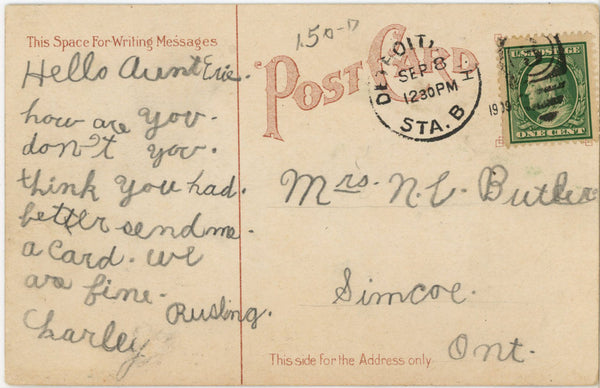 This Space For Writing Messages
Hello Aunt Evie.
how are you.
don't you.
think you had.
better send me.
a card. we
are fine.
Charley Rusling.
150-D
POST CARD
DETROIT, MICH
SEP 8
1230PM
1909
STA. B
U.S. POSTAGE
ONE CENT
Mrs. N. C. Butler
Simcoe.
Ont.
This side for the Address only